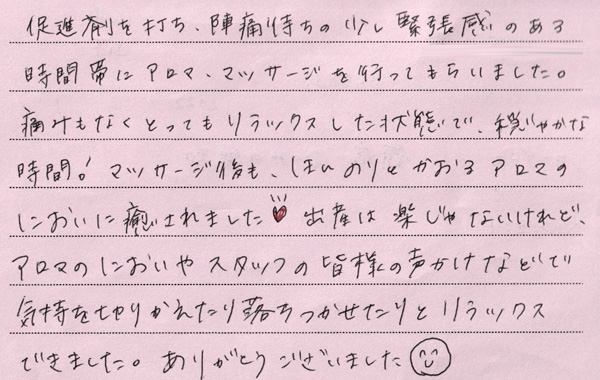 促進剤を打ち、陣痛待ちの少し緊張感のある
時間帯にアロマ、マッサージを行ってもらいました。
痛みもなくとってもリラックスした状態で、穏やかな
時間！マッサージ後も、ほんのりとかおるアロマの
においに癒されました 出産は楽じゃないけれど、
アロマのにおいやスタッフの皆様の声かけなどで
気持を切りかえたり落ちつかせたりとリラックス
できました。ありがとうございました